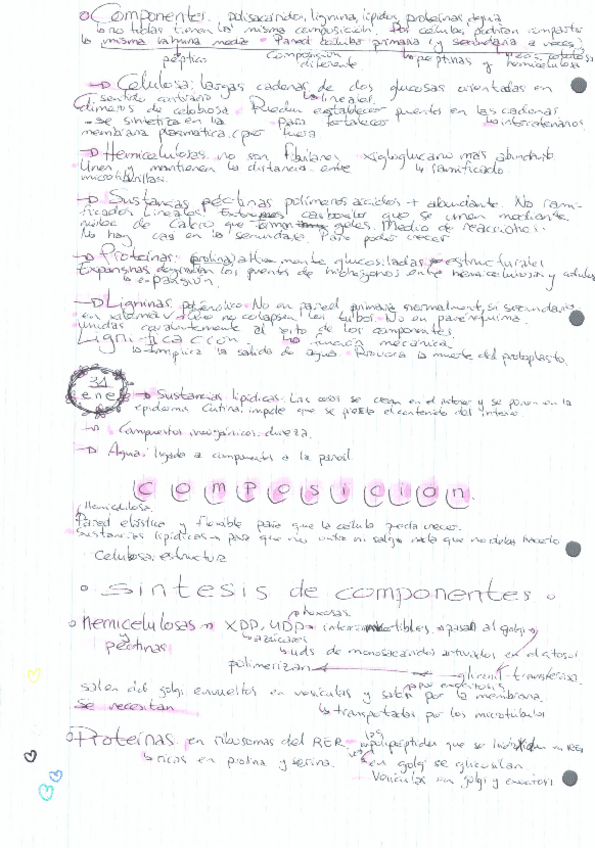 Componentes. polisacáridos, lignina, lípidos, proteínas, agua
no todas tienen la misma composición. Dos células pueden compartir
la misma lámina media - Pared celular primaria y secundaria a veces
pécticos Composición diferente pectinas y hemicelulosa
→ Celulosa: largas cadenas de dos glucosas orientadas en
sentido contrario lineales.
dímeros de celobiosa. Pueden establecer puentes en las cadenas
- se sintetiza en la para fortalecer intercatenarios
membrana plasmática (por fuera
→ Hemicelulosas. no son fibrilares xiloglucano más abundante
Unen y mantienen la distancia entre ramificado.
microfibrillas.
→ Sustancias pectinas polímeros ácidos + abundante. No rami-
ficados lineales. carboxilo que se unen mediante
de Calcio que geles. Medio de reacciones.
No hay casi en la secundaria. Para poder crecer
→ Proteínas: (prolina) altamente glucosiladas estructurales
Expansinas degradan los puentes de hidrógenos entre hemicelulosa y celulosa
expansión.
→ Ligninas. No en pared primaria normalmente, si secundaria
en xilema no colapsen los tubos. No en parénquima.
unidas covalentemente al resto de los componentes.
Lignificación función mecánica.
implica la salida de agua. Provoca la muerte del protoplasto.
31
ene
→ Sustancias lipídicas: Las ceras se crean en el interior y se ponen en la
epidermis. Cutina: impide que se pierda el contenido del interior.
→ Compuestos inorgánicos: dureza.
→ Agua: ligada a componentes o la pared.
Composicion
Hemicelulosa.
Pared elástica y flexible para que la célula pueda crecer.
Sustancias lipídicas → para que no entre ni salga nada que no debas hacerlo
Celulosa: estructura
Sintesis de componentes
hexosas
hemicelulosas → XDP, UDP → pasan al golgi
y azúcares
pectinas uds de monosacáridos activados en el citosol
polimerizan glicosil-transferasa
salen del golgi envueltos en vesículas y salen por la membrana.
se necesitan transportados por los microtúbulos
Proteínas. en ribosomas del RER. polipéptidos que se en RER
ricas en prolina y serina. en golgi se glucosilan
Vesículas en golgi y